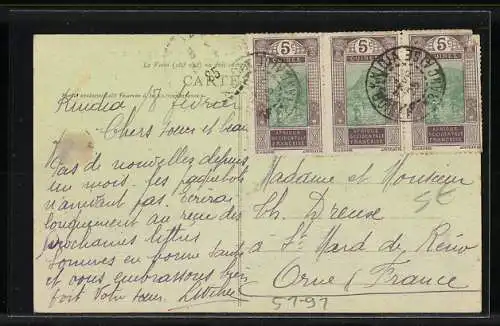 CARTE
25
5c 5c 5c
GUINÉE
AFRIQUE OCCIDENTALE FRANÇAISE
AFRIQUE OCCIDENTALE FRANÇAISE
AFRIQUE OCCIDENTALE FRANÇAISE
Kindia 8 février
Chers soeur et beau
Pas de nouvelles depuis
un mois. les paquebots
n'arrivent pas.
longuement au reçu des
prochaines lettres
sommes en bonne santé
et vous embrassons bien
fort Votre soeur
Madame et Monsieur
Ch. Dreuse
à St Mard de Réno
Orne (France
5191